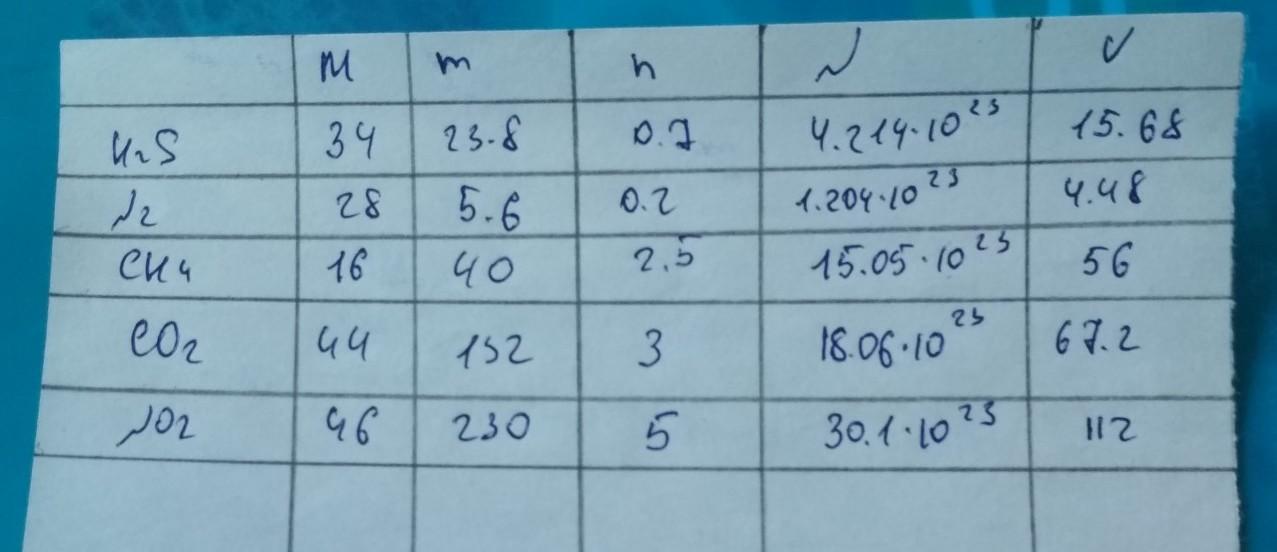 M m n N V
H2S 34 23.8 0.7 4.214·10^23 15.68
N2 28 5.6 0.2 1.204·10^23 4.48
CH4 16 40 2.5 15.05·10^23 56
CO2 44 132 3 18.06·10^23 67.2
NO2 46 230 5 30.1·10^23 112